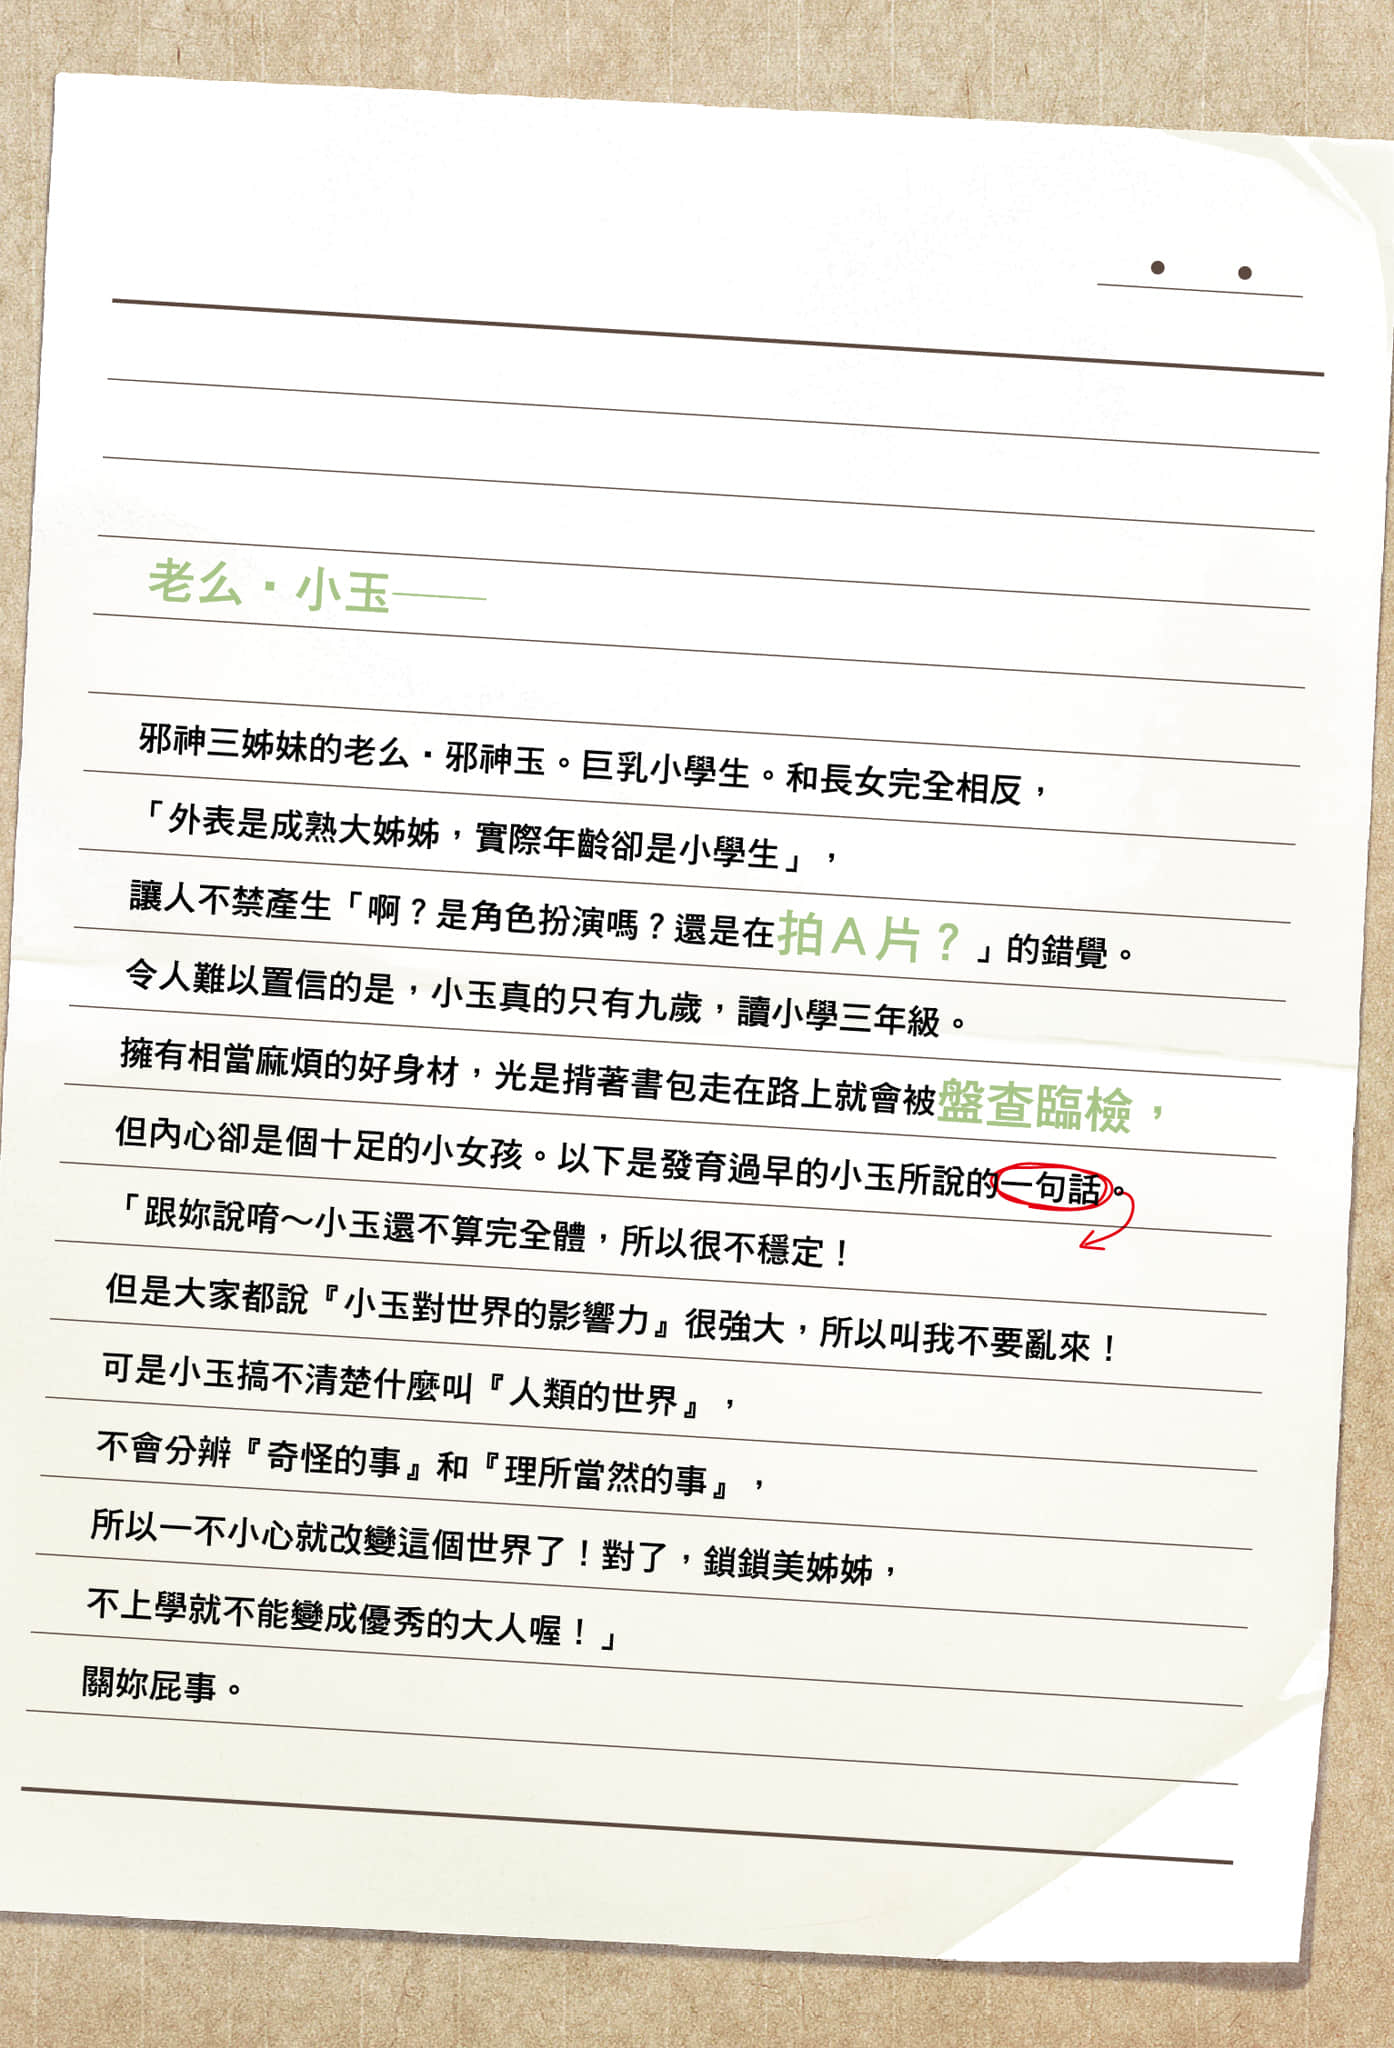 老么·小玉——
邪神三姊妹的老么·邪神玉。巨乳小學生。和長女完全相反，
「外表是成熟大姊姊，實際年齡卻是小學生」，
讓人不禁產生「啊？是角色扮演嗎？還是在拍Ａ片？」的錯覺。
令人難以置信的是，小玉真的只有九歲，讀小學三年級。
擁有相當麻煩的好身材，光是揹著書包走在路上就會被盤查臨檢，
但內心卻是個十足的小女孩。以下是發育過早的小玉所說的一句話。
「跟妳說唷～小玉還不算完全體，所以很不穩定！
但是大家都說『小玉對世界的影響力』很強大，所以叫我不要亂來！
可是小玉搞不清楚什麼叫『人類的世界』，
不會分辨『奇怪的事』和『理所當然的事』，
所以一不小心就改變這個世界了！對了，鎖鎖美姊姊，
不上學就不能變成優秀的大人喔！」
關妳屁事。